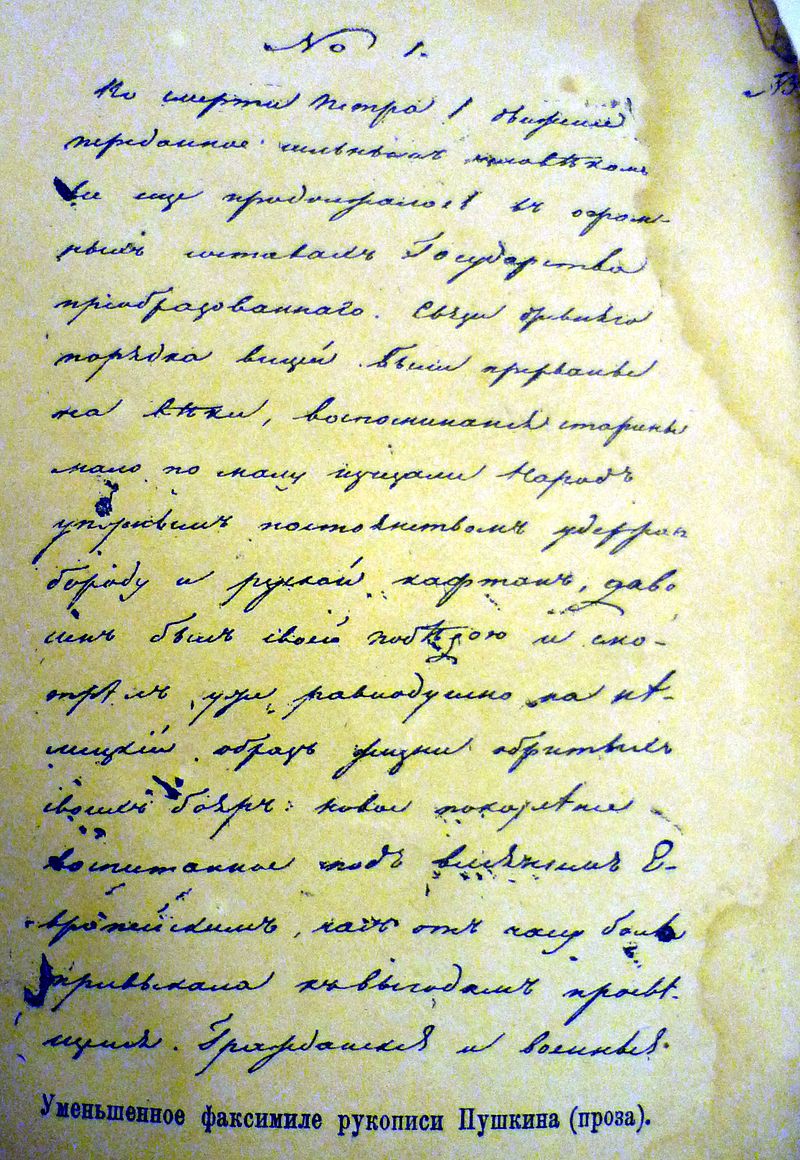 № 1.
По смерти Петра I движение
переданное сильнымъ человѣкомъ
все еще продолжалось въ огром-
ныхъ составахъ Государства
преобразованнаго. Связи древняго
порядка вещей были прерваны
на вѣки, воспоминанія старины
мало по малу изчезали Народъ
упорнымъ постоянствомъ удержав
бороду и русской кафтанъ, дово
ленъ былъ своей побѣдою и смо-
трѣлъ уже равнодушно на нѣ-
мецкій образъ жизни обритыхъ
своихъ бояръ: новое поколѣніе
воспитанное подъ вліяніемъ Е-
вропейскимъ, часъ отъ часу более
привыкало къ выгодамъ просвѣ-
щенія. Гражданскія и военные
Уменьшенное факсимиле рукописи Пушкина (проза).